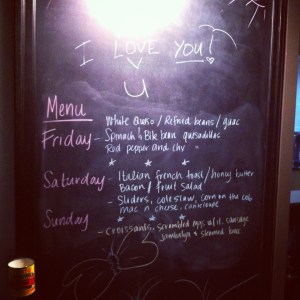 I LOVE YOU!
U
Menu
White Queso / Refried beans / guac
Friday - Spinach & Blk bean quesadillas
Red pepper and chv
* * *
Saturday - Italian french toast / honey butter
Bacon / fruit salad
- Sliders, coleslaw, corn on the cob
mac n cheese, cantelope
Sunday * * *
- croissants, scrambled eggs, sausage
jambalya & steamed